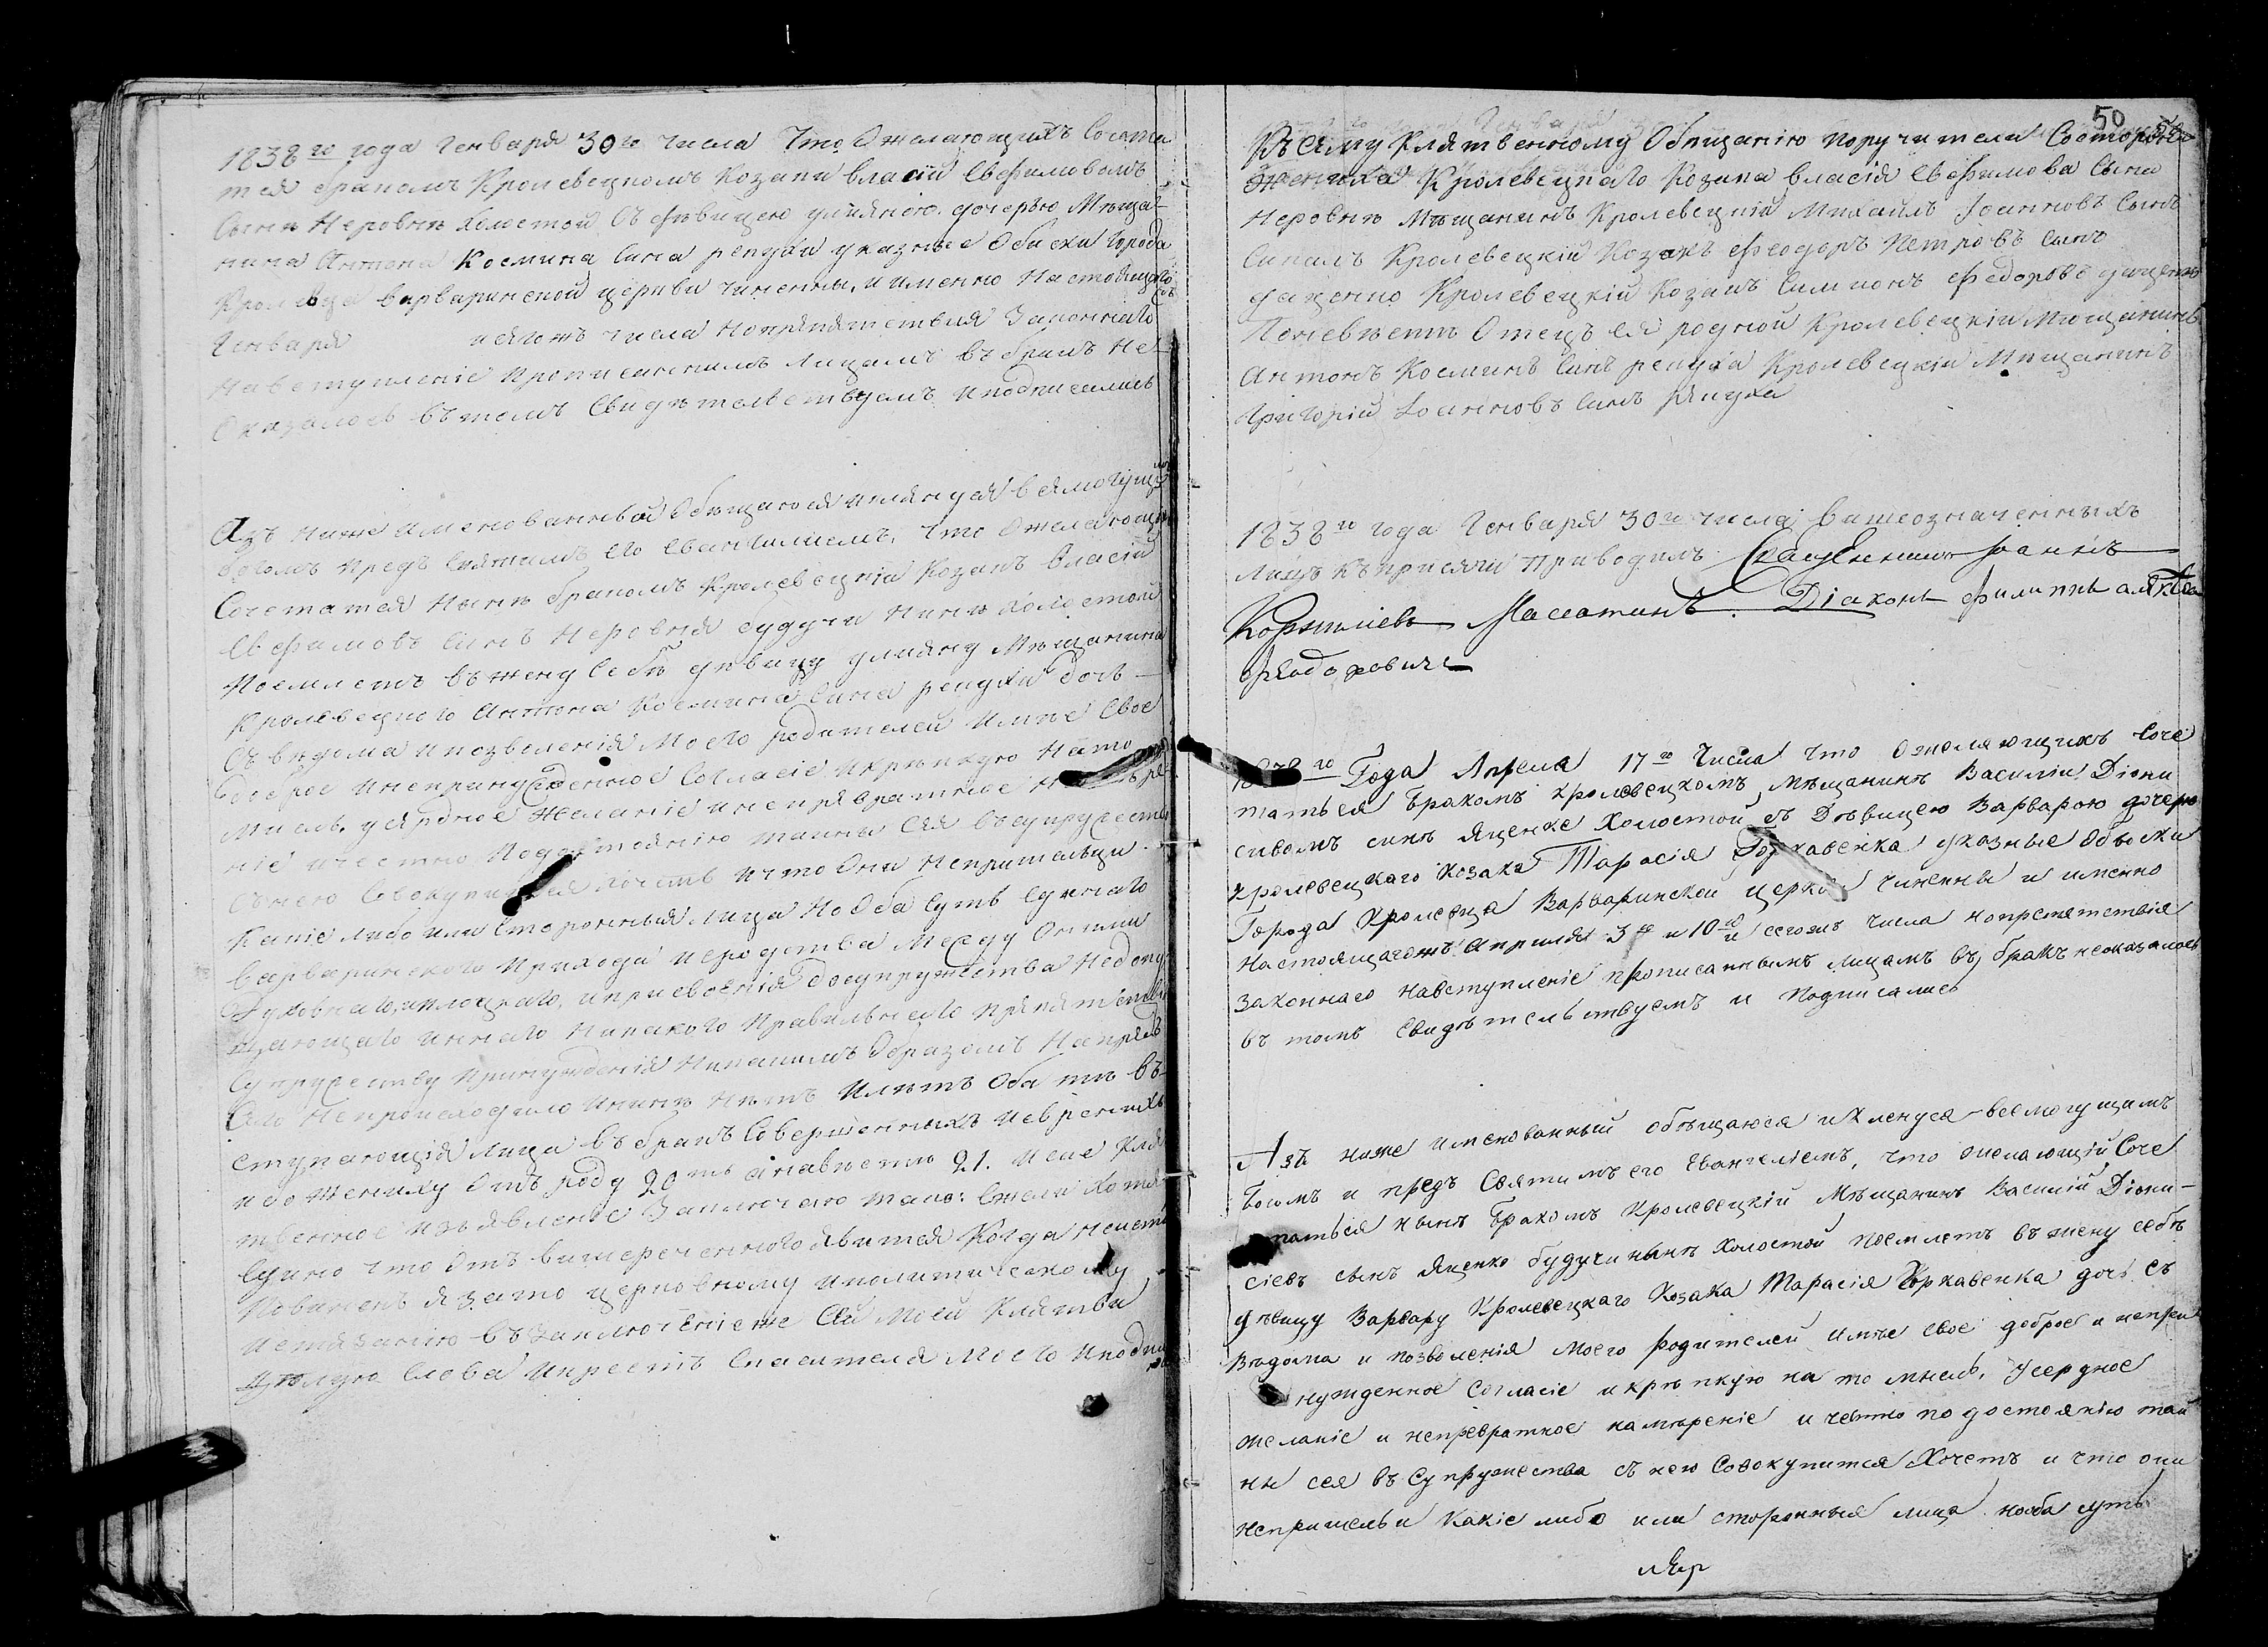 1838го года Генваря 30го числа Что Ожелающихъ Сочета
тся бракомъ Кролевецкомъ Козаки власіи Евфимовомъ
Сынѣ Неровнѣ холостой Съ дѣвицею уліяною дочерью Мѣща-
нина Антона Космина Сина репухи указные Обиски Города
Кролевца варваринской церкви чиненны, и именно Настоящего
Генваря числа Нопрепятствия Законнаго
Навступленіе прописаннимъ лицамъ въ бракъ не-
Оказалось вътомъ Свидѣтелствуемъ иподписались
Азъ ниже именованный Обѣщаюся иклянуся всемогущи
богомъ предъ Святимъ его Евангилиемъ, Что Ожелающи
Сочетатся Нынѣ бракомъ Кролевецкій Козакъ Власій
Евфимовъ Синъ Неровня будучи Нинѣ холостой
Поемлетъ въ жену Себѣ дѣвицу улияну Мѣщанина
Кролевецкого Антона Космина Сина репухи дочь —
Съ вѣдома ипозволенія Моего родителей Имѣе Свое
доброе инепринужденное Согласіе икрепкую Нато
Мисль, усердное Желаніе инепревратное
ніе ичестно Подостоянію тайны Сея всупружества
Сънею Совокупится хочетъ ичто Они Непришельци
Какіе либо или Сторонныя Лица Но Оба Суть Суннаго
варваринского Прихода иеродства Между Оними
Духовнаго, иплоцкаго, иприсвоенія досупружества Недопу
щающаго иннаго Никакого Правильнаго Препятстви
Супружеству Принужденія Никакимъ Образомъ
Само Непроисходило ининѣ Нѣтъ Илѣтъ Оба тѣ въ-
ступающія Лица въ бракъ Совершенныхъ
ибо Жениху Отъ роду 20ть аневѣсте 21. Исие Кля
твенное Изъявленіе Заключаю тако: Ежели Хотя
едино что Отъ вишереченного явится Когда
Повиненъ я зато церковному иполитическому
истязанію — възаключеніеже Сей Моей Клятви
Цѣлую Слова икрестъ Спасителя Моего
50
Къ Сему Клятвенному Обищанію поручители Состороны
Жениха Кролевецкаго Козака власія Евфимова Сына
Неровни Мѣщанинъ Кролевецкій Михайлъ Іоанновъ Сынъ
Сипалъ Кролевецкій Козакъ Феодоръ Петровъ сынъ
дященко Кролевецкій Козакъ Симионъ Федоровъ
Поневѣстѣ Отецъ Ея родной Кролевецкій Мѣщанинъ
Антонъ Косминъ Синъ репуха Кролевецкій Мѣщанинъ
Григорій Іоанновъ Синъ
1838го года Генваря 30го числа Вишеозначенныхъ
Лицъ къ присяги Приводилъ Священникъ Іоаннъ
Діаконъ Филиппъ
Феодоровичъ
1838го Года Апреля 17го Числа Что Ожеляющихъ Соче
таться бракомъ Кролевецкомъ Мѣщанинѣ Василіи Діони
сивомъ синѣ Яценке Холостой съ Дѣвицею Варварою дочерю
Кролевецкаго Козака Тарасія Горкавенка указные Обыски
Города Кролевца Варваринской церкви чиненны и именно
Настоящагожъ Апрелия 3го и 10го и сегожъ Числа Нопрепятствія
законнаго навступленіе прописаннымъ лицамъ въ бракъ неоказалось
въ томъ Свидѣтельствуемъ и подписались
Азъ ниже именованный обѣщаюся и Клянуся всемогущимъ
Богомъ и предъ Святимъ его Евангеліемъ, что ожелающій Соче
таться нынѣ бракомъ Кролевецкій Мѣщанинъ Василій Діони-
сіевъ сынъ Яценко будучи нынѣ холостой поемлетъ въ жену себѣ
дѣвицу Варвару Кролевецкаго Козака Тарасія Горкавенка дочь съ
вѣдома и позволенія моего родителей Имѣе свое доброе и непри
нужденное Согласіе и крѣпкую на то мысль, Усердное
желаніе и непревратное намѣреніе и честно по достоянію тай
ны сея въ Супружества съ нею Совокупится Хочетъ и что они
непришельци Какіе либо или сторонныя лица нооба суть